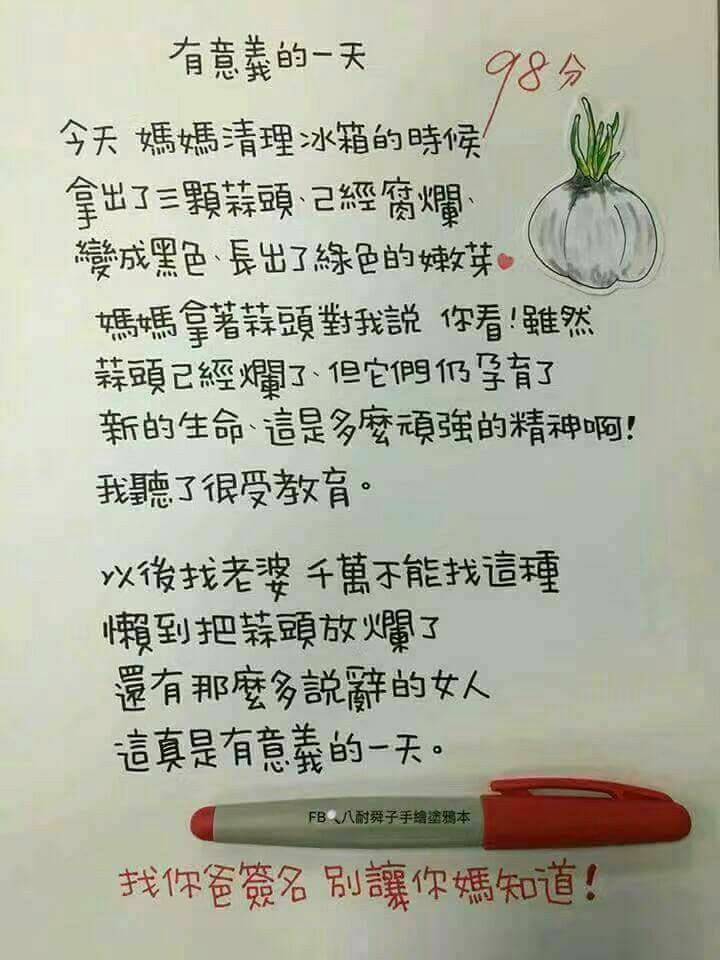 有意義的一天
98分
今天 媽媽清理冰箱的時候
拿出了三顆蒜頭、已經腐爛、
變成黑色、長出了綠色的嫩芽
媽媽拿著蒜頭對我說 你看!雖然
蒜頭已經爛了、但它們仍孕育了
新的生命、這是多麼頑強的精神啊!
我聽了很受教育。
以後找老婆 千萬不能找這種
懶到把蒜頭放爛了
還有那麼多說辭的女人
這真是有意義的一天。
FB 八耐舜子手繪塗鴉本
找你爸簽名 別讓你媽知道!